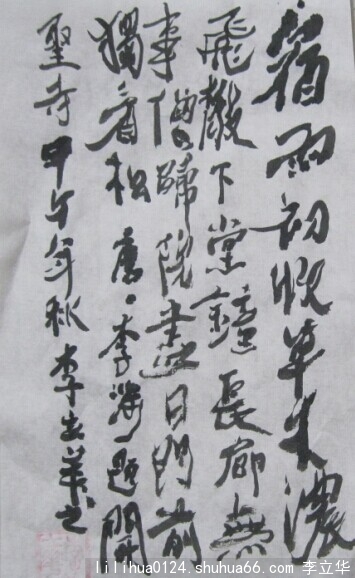 宿雨初收草木濃
飛散下堂鐘長廊無
事僧歸院盡日門前
獨看松 唐·李涉題開
聖寺 甲午年秋 李立華书
lilihua0124.shuhua66.com 李立华